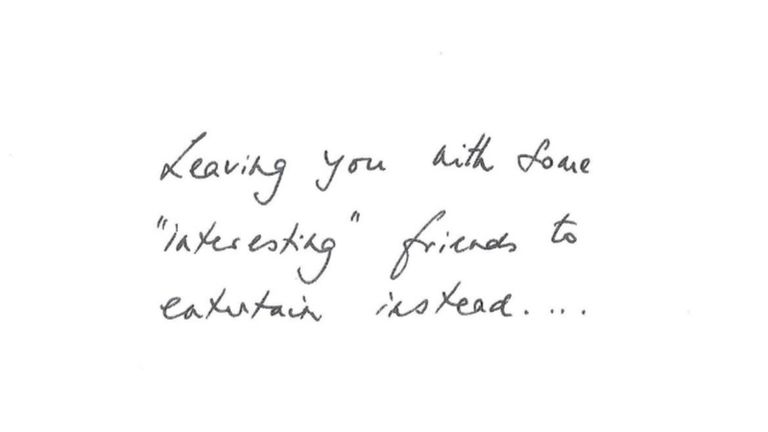 Leaving you with some
"interesting" friends to
entertain instead....